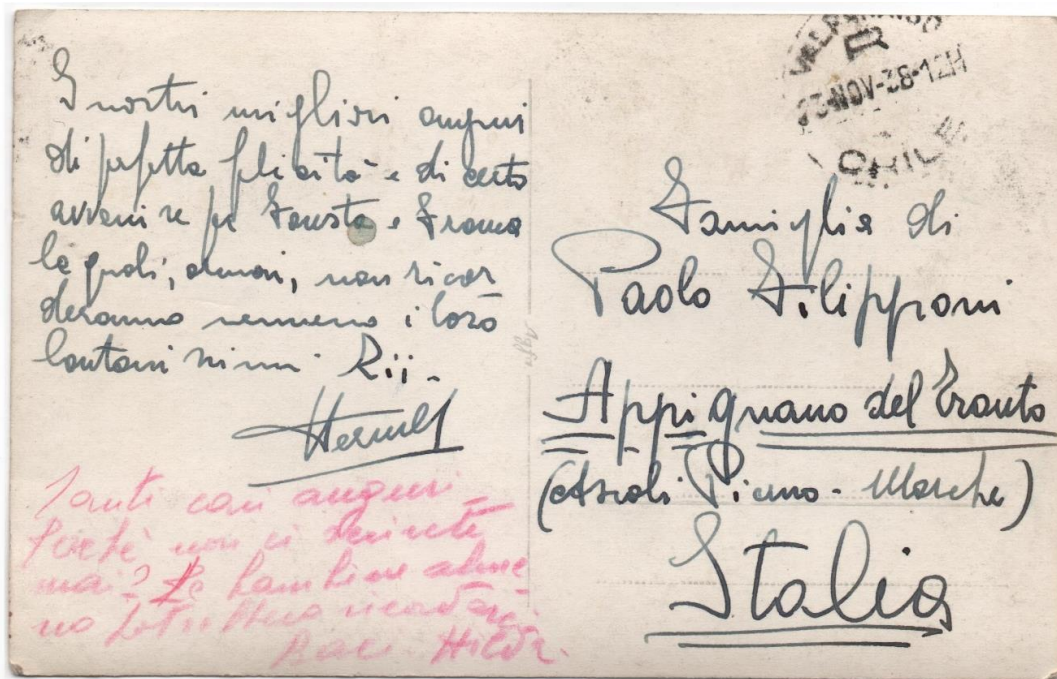 I nostri migliori auguri
di perfetta felicità e di certo
avvenire per Fausta e Franca
le quali, ormai, non ricor
deranno nemmeno i loro
lontanissimi Zii.
Tanti cari auguri
Perché non ci scrivete
mai? Le bambine alme
no potrebbero ricordarsi
Baci Hilda.
CHILE
Famiglia di
Paolo Filipponi
Appignano del Tronto
(Ascoli Piceno - Marche)
Italia